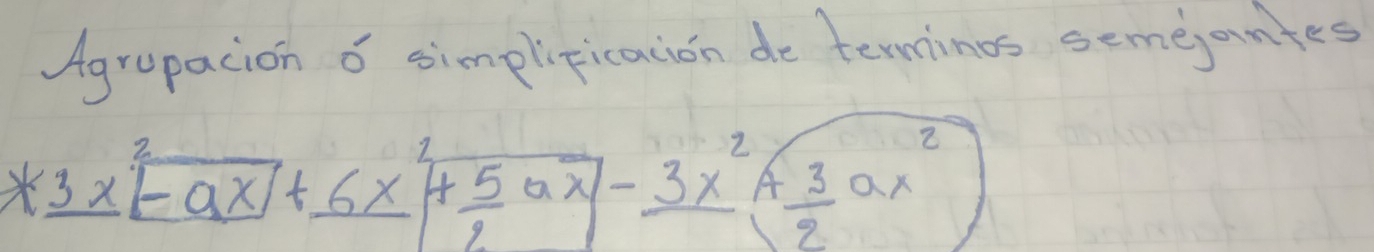 Agrupación ó simplificación de terminos seméjantes
*3x² - ax + 6x² + 5/2 ax - 3x² + 3/2 ax²